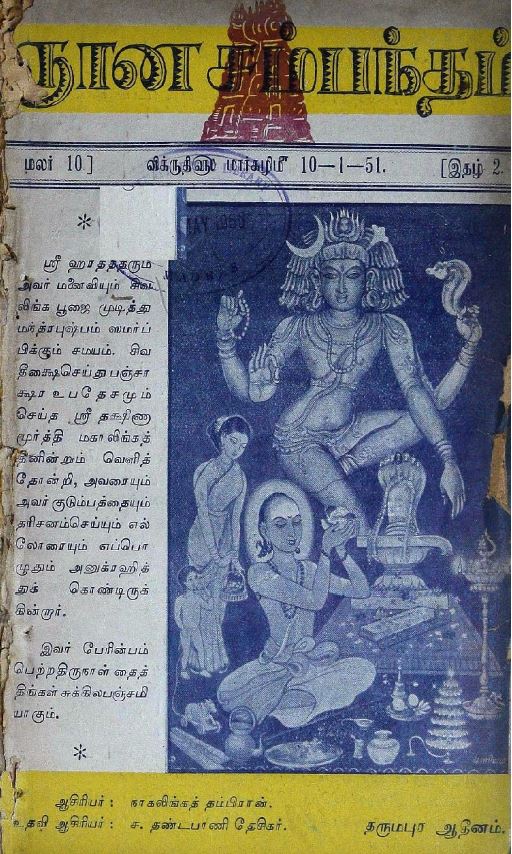 ஞான சம்பந்தம்
மலர் 10 ]
விக்ருதிளு மார்கழிமீ 10—1—51.
[ இதழ் 2.
*
ஸ்ரீ ஹரதத்தரும்
அவர் மனைவியும் சிவ
லிங்க பூஜை முடித்து
மந்த்ரபுஷ்பம் ஸமர்ப்
பிக்கும் சமயம். சிவ
தீக்ஷைசெய்து பஞ்சா
க்ஷர உபதேசமும்
செய்த ஸ்ரீ தக்ஷிணா
மூர்த்தி மகாலிங்கத்
தினின்றும் வெளித்
தோன்றி, அவரையும்
அவர் குடும்பத்தையும்
தரிசனம்செய்யும் எல்
லோரையும் எப்பொ
ழுதும் அனுக்ரஹித்
துக் கொண்டிருக்
கின்றார்.
இவர் பேரின்பம்
பெற்றதிருநாள் தைத்
திங்கள் சுக்கிலபஞ்சமி
யாகும்.
*
ஆசிரியர் : நாகலிங்கத் தம்பிரான்.
உதவி ஆசிரியர் : ச. தண்டபாணி தேசிகர்.
தருமபுர ஆதீனம்.